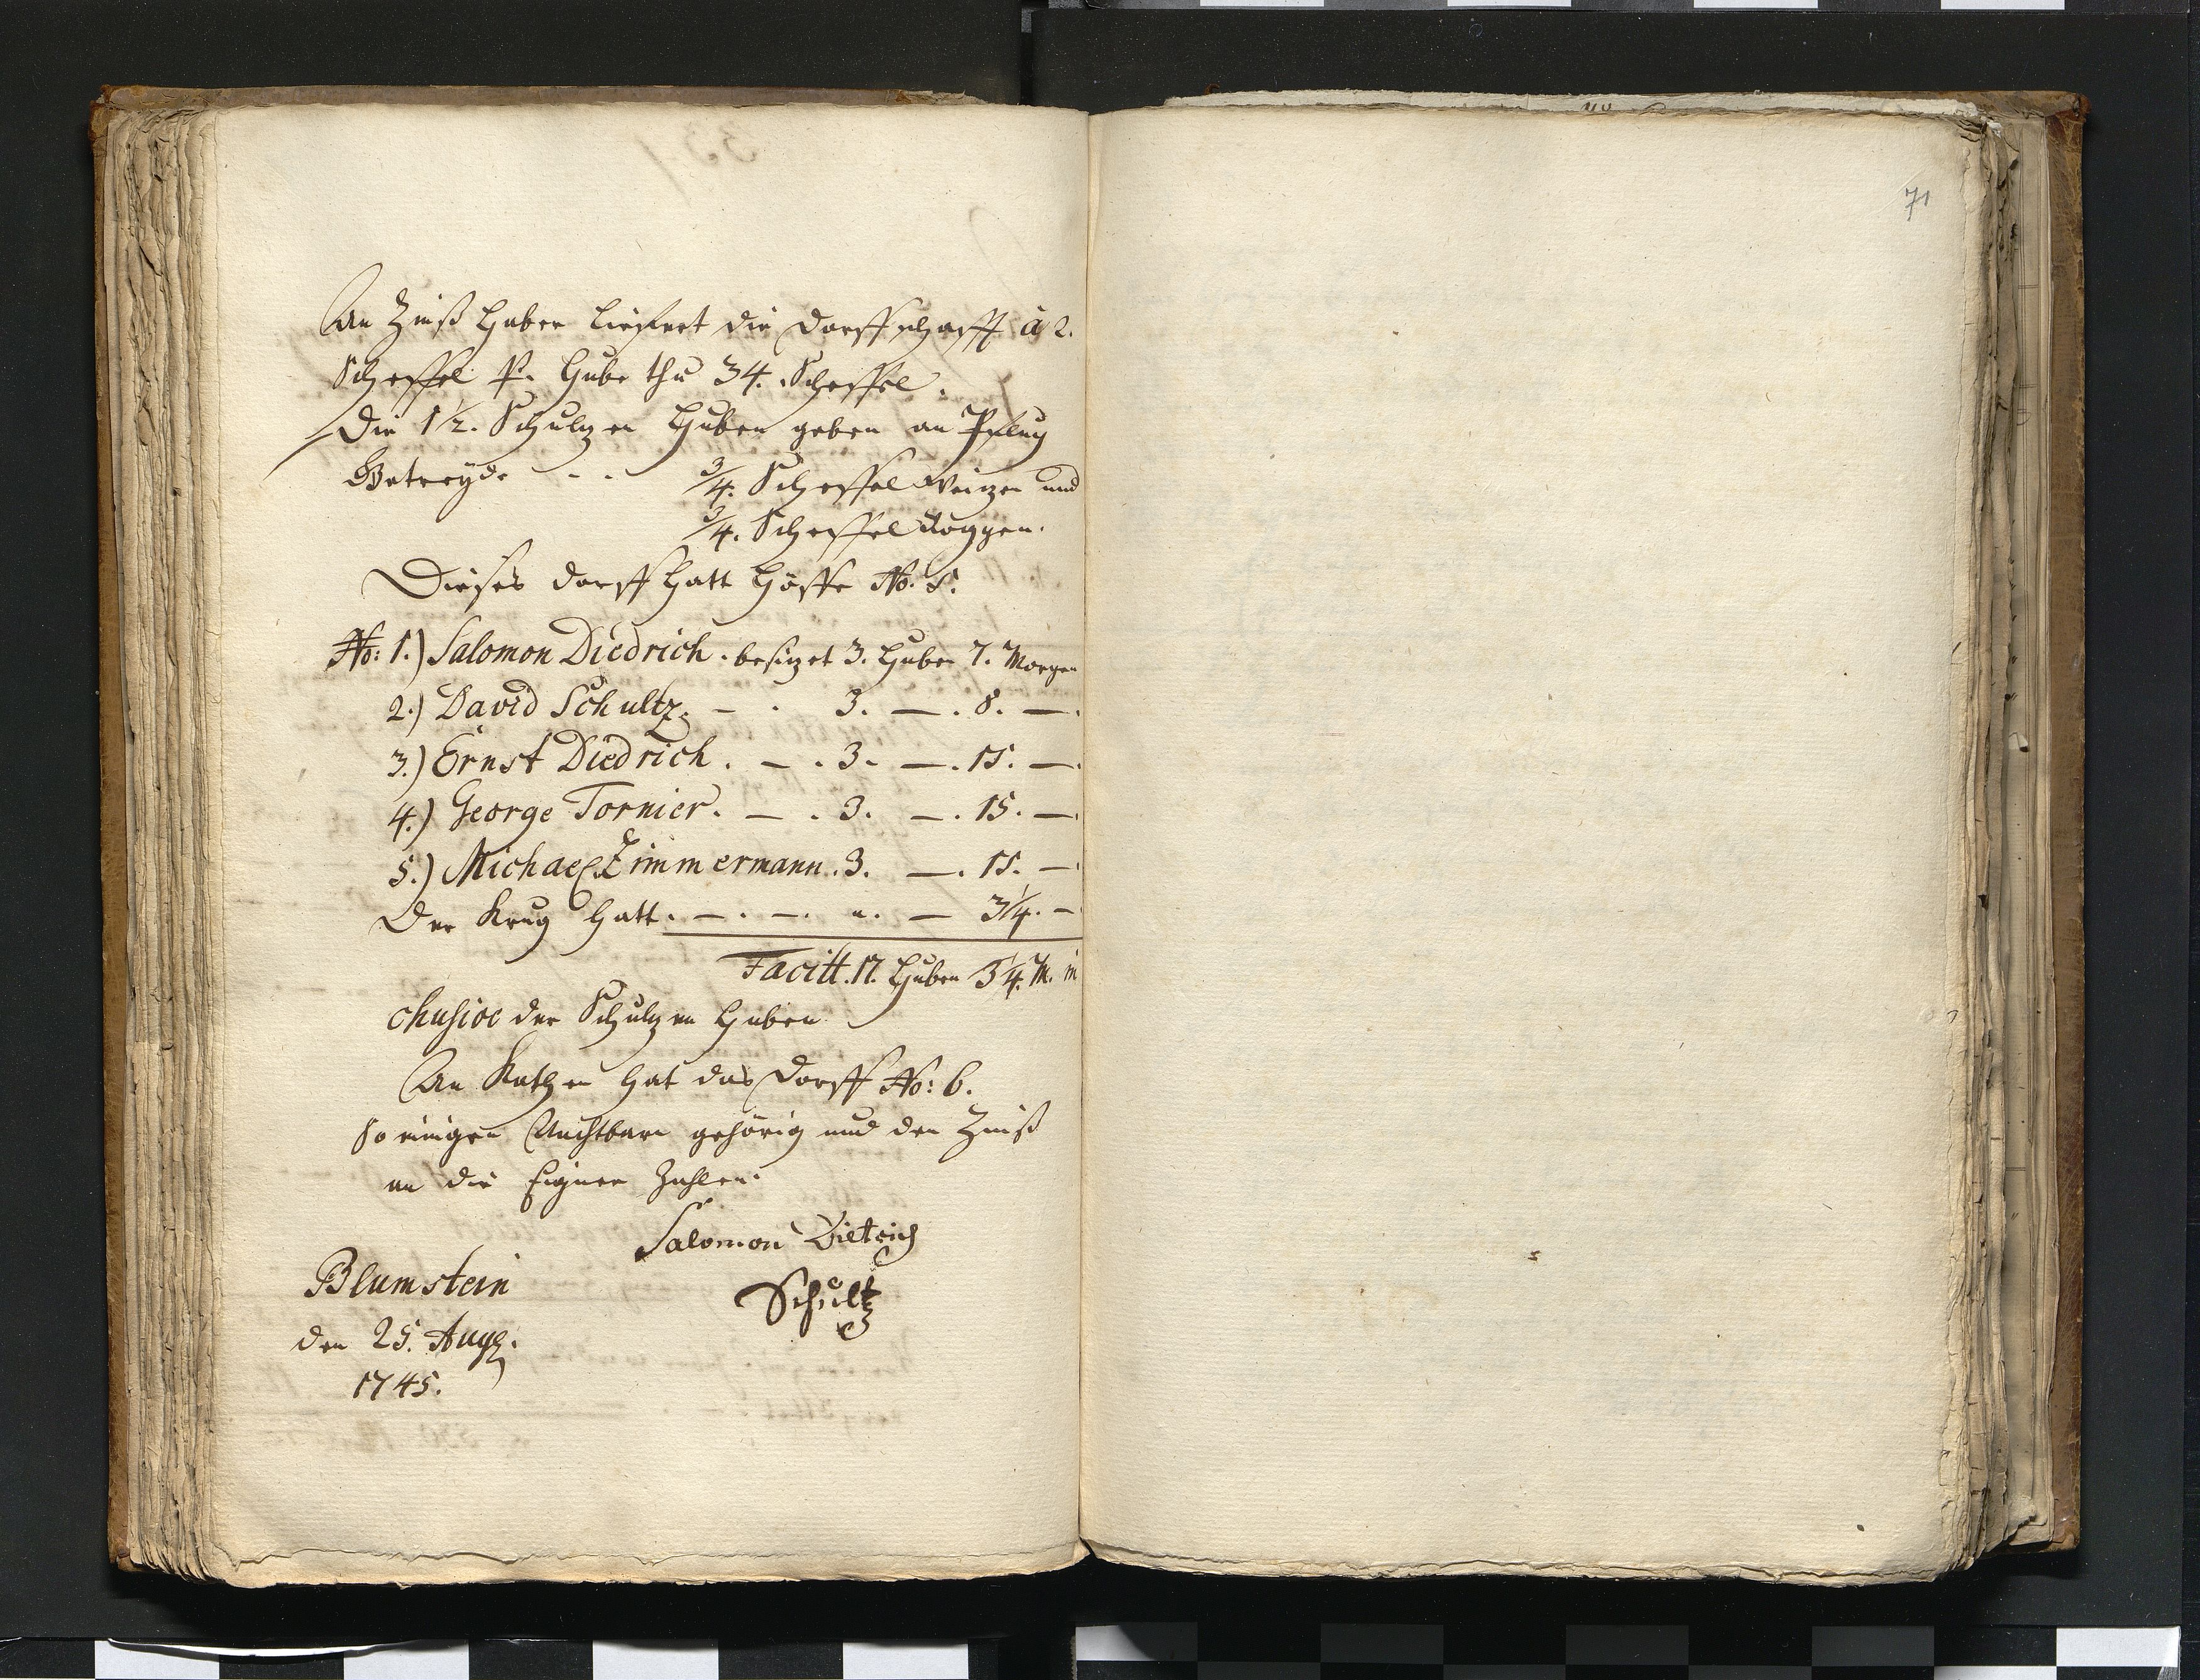 An Zinß Haber liefert die Dorffschafft à 2.
Scheffel P. Hube thu 34. Scheffel.
Die 1½. Schultzen Huben geben an Pflug
Getreyde - - ¾. Scheffel Weitzen und
¾. Scheffel Roggen.
Dieses Dorff Hatt Höffe No. 5.
No: 1.) Salomon Diedrich. besitzet 3. Huben 7. Morgen
2.) David Schultz. - . 3. —. 8. —.
3.) Ernst Diedrich. - . 3. —. 15. —.
4.) George Tornier. - . 3. —. 15. —.
5.) Michael Zimmermann. 3. —. 15. —
Der Krug hatt. —. —. ". — 3¼. —
Facitt. 17. Huben 3¼. M. in
clusive der Schultzen Huben
An Kathen hat das Dorff No: 6.
so einigen Nachtbarn gehörig und den Zinß
an die Eigner Zahlen.
Salomon Dietrich
Schultz
Blumstein
den 25. Aug.
1745.
71